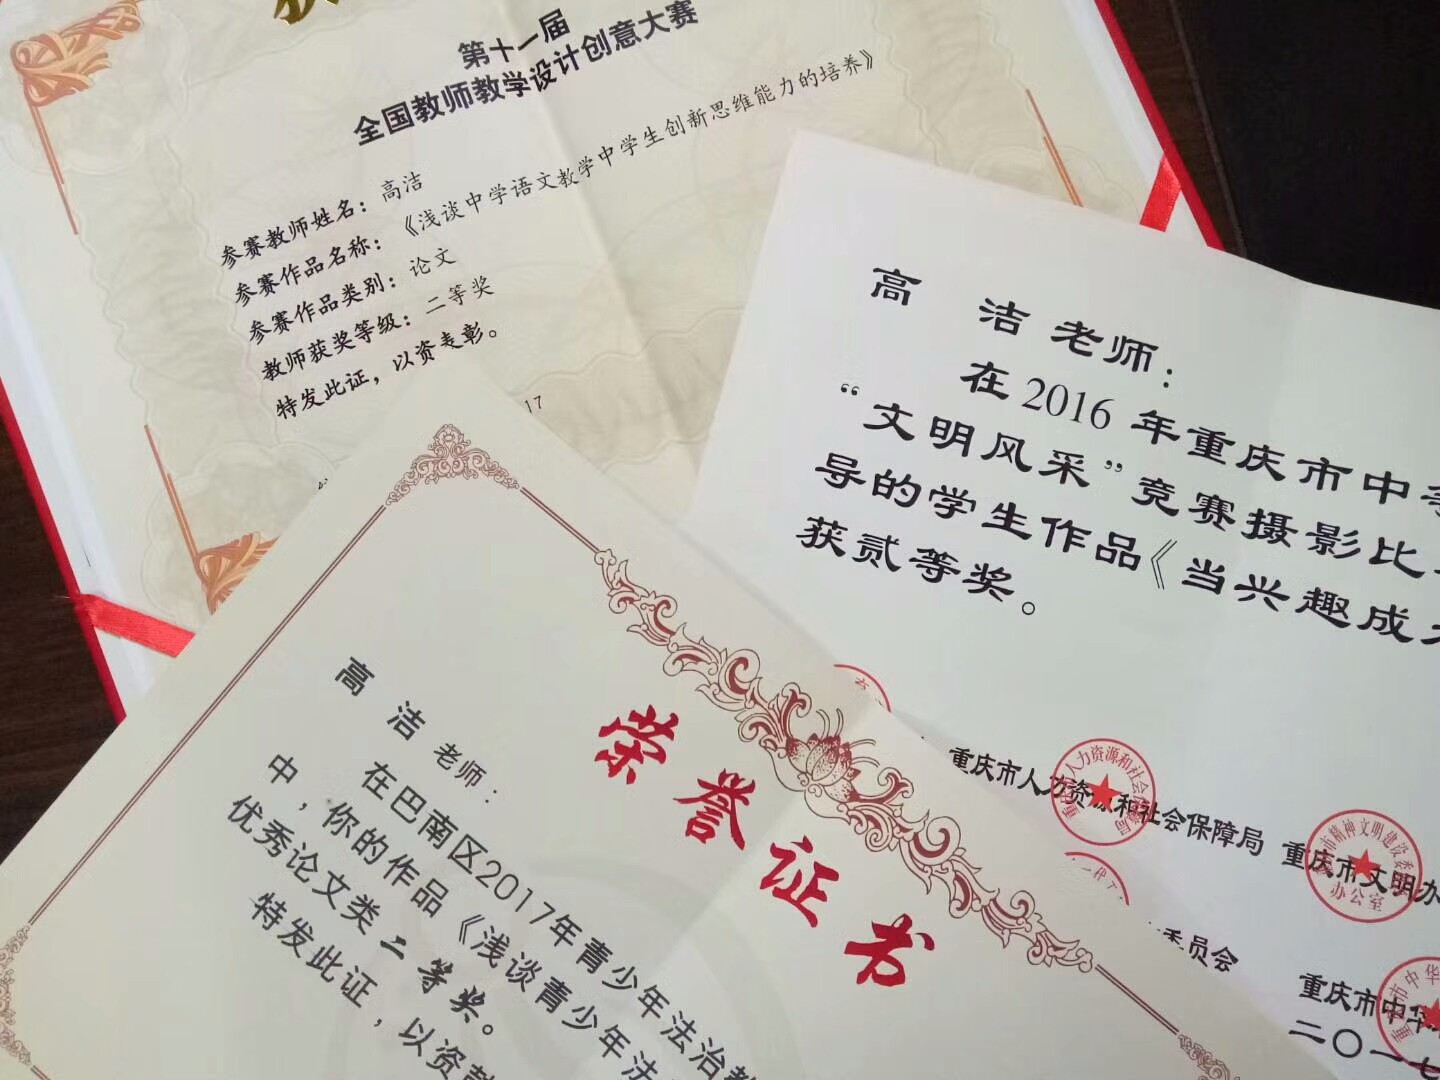 第十一届
全国教师教学设计创意大赛
参赛教师姓名：高洁
参赛作品名称：《浅谈中学语文教学中学生创新思维能力的培养》
参赛作品类别：论文
教师获奖等级：二等奖
特发此证，以资表彰。
17
高 洁 老师：
在 2016 年重庆市中等
“文明风采”竞赛摄影比
导的学生作品《当兴趣成
获贰等奖。
重庆市人力资源和社会保障局
重庆市文明办
人力资源和社会保障局
市精神文明建设委
办公室
委员会
重庆市中华
市中华
二〇一七
荣誉证书
高 洁 老师：
在巴南区2017年青少年法治教
中，你的作品《浅谈青少年法
优秀论文类二等奖。
特发此证，以资鼓